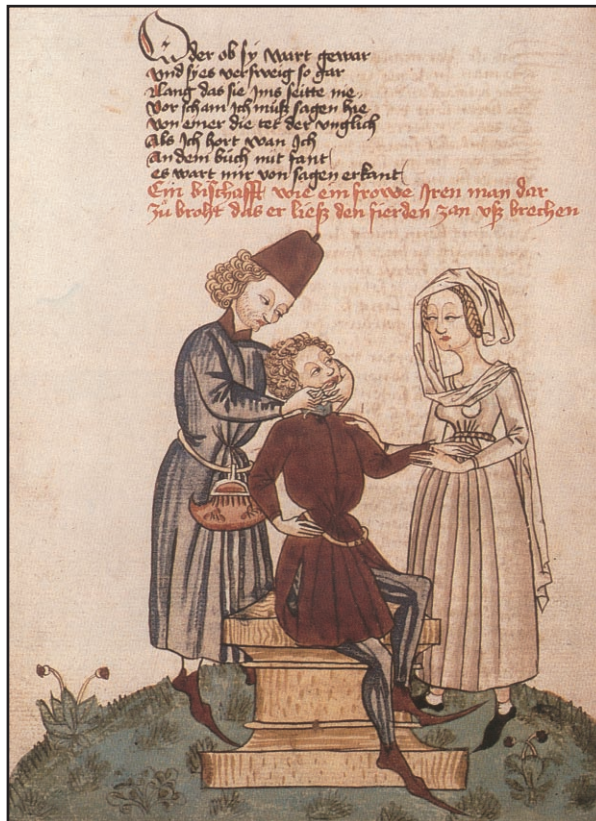 Oder ob sy wart gewar
Vnd sy es versweig so gar
Lang das sie Ims seitte nie
Vor scham Ich müsz sagen hie
Von einer die tet der vnglich
Als Ich hort wan Ich
An dem büch nit fant
es wart mir von sagen erkant
Ein bischafft wie ein frowe Iren man dar
Zů broht das er liesz den fierden zan vsz brechen